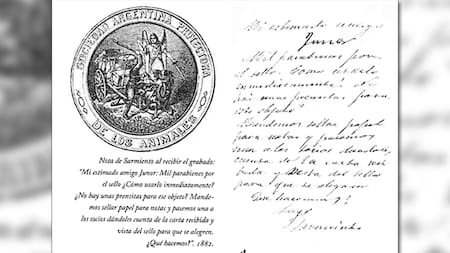 SOCIEDAD ARGENTINA PROTECTORA
DE LOS ANIMALES
Nota de Sarmiento al recibir el grabado:
"Mi estimado amigo Junor: Mil parabienes por
el sello ¿Cómo usarlo inmediatamente?
¿No hay unas prensitas para ese objeto? Mande-
mos sellar papel para notas y pasemos una a
los socios dándoles cuenta de la carta recibida y
vista del sello para que se alegren.
¿Qué hacemos?". 1882.
Mi estimado amigo
Junor
Mil parabienes por
el sello. Como usarlo
inmediatamente? No
hai unas prensitas para
ese objeto?
Mandemos sellar papel
para notas y pasemos
una a los socios dandoles
cuenta de la carta reci
bida y vista del sello
para que se alegren
Que hacemos?
Suyo
Sarmiento